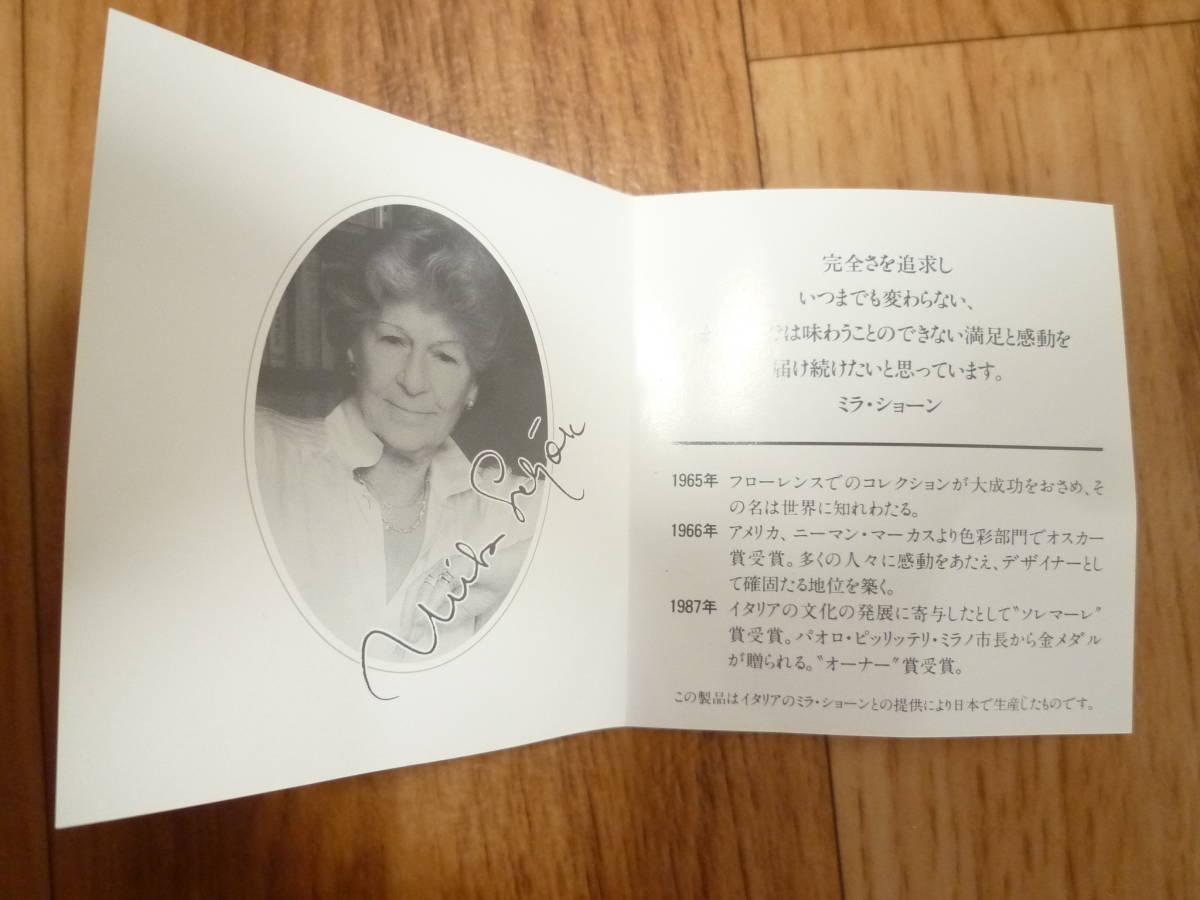 Mila Schön
完全さを追求し
いつまでも変わらない、
は味わうことのできない満足と感動を
届け続けたいと思っています。
ミラ・ショーン
1965年 フローレンスでのコレクションが大成功をおさめ、そ
の名は世界に知れわたる。
1966年 アメリカ、ニーマン・マーカスより色彩部門でオスカー
賞受賞。多くの人々に感動をあたえ、デザイナーとし
て確固たる地位を築く。
1987年 イタリアの文化の発展に寄与したとして"ソレマーレ"
賞受賞。パオロ・ピッリッテリ・ミラノ市長から金メダル
が贈られる。"オーナー"賞受賞。
この製品はイタリアのミラ・ショーンとの提供により日本で生産したものです。